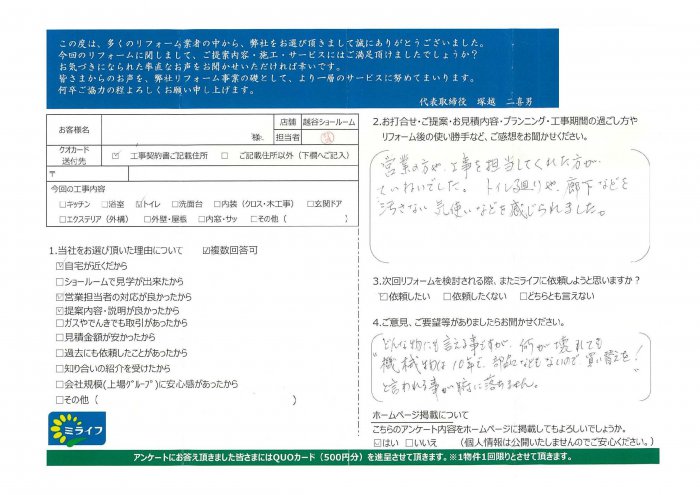 この度は、多くのリフォーム業者の中から、弊社をお選び頂きまして誠にありがとうございました。
今回のリフォームに関しまして、ご提案内容・施工・サービスにはご満足頂けましたでしょうか?
お気づきになられた率直なお声をお聞かせいただければ幸いです。
皆さまからのお声を、弊社リフォーム事業の礎として、より一層のサービスに努めてまいります。
何卒ご協力の程よろしくお願い申し上げます。
代表取締役 塚越 二喜男
お客様名
様
店舗 越谷ショールーム
担当者
クオカード送付先
☑ 工事契約書ご記載住所 □ ご記載住所以外(下欄へご記入)
〒
今回の工事内容
□キッチン □浴室 ☑トイレ □洗面台 □内装(クロス・木工事) □玄関ドア
□エクステリア(外構) □外壁・屋根 □内窓・サッシ □その他( )
1.当社をお選び頂いた理由について ☑複数回答可
☑自宅が近くだから
□ショールームで見学が出来たから
☑営業担当者の対応が良かったから
☑提案内容・説明が良かったから
□ガスやでんきでも取引があったから
□見積金額が安かったから
□過去にも依頼したことがあったから
□知り合いの紹介を受けたから
□会社規模(上場グループ)に安心感があったから
□その他( )
ミライフ
2.お打合せ・ご提案・お見積内容・プランニング・工事期間の過ごし方や
リフォーム後の使い勝手など、ご感想をお聞かせください。
営業の方や、工事を担当してくれた方が
ていねいでした。トイレ廻りや、廊下などを
汚さない気使いなどを感じられました。
3.次回リフォームを検討される際、またミライフに依頼しようと思いますか?
☑依頼したい □依頼したくない □どちらとも言えない
4.ご意見、ご要望等がありましたらお聞かせください。
どんな物にも言える事ですが、何が壊れても
"機械物は10年で、部品などもないので買い替えを!
と言われる事が腑に落ちません。
ホームページ掲載について
こちらのアンケート内容をホームページに掲載してもよろしいでしょうか。
☑はい □いいえ (個人情報は公開いたしませんのでご安心ください。)
アンケートにお答え頂きました皆さまにはQUOカード(500円分)を進呈させて頂きます。※1物件1回限りとさせて頂きます。